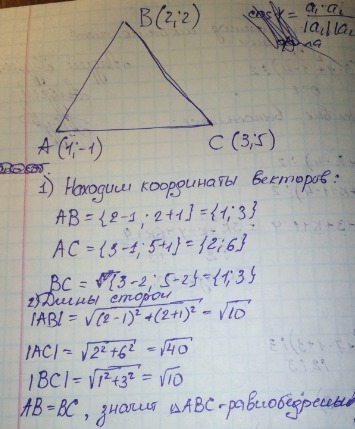 B (2;2)
A (1;-1)
C (3;5)
1) Находим координаты векторов:
AB = {2-1; 2+1} = {1;3}
AC = {3-1; 5+1} = {2;6}
BC = {3-2; 5-2} = {1;3}
2) Длины сторон
|AB| = √(2-1)² + (2+1)² = √10
|AC| = √2² + 6² = √40
|BC| = √1² + 3² = √10
AB = BC, значит △ABC - равнобедренный